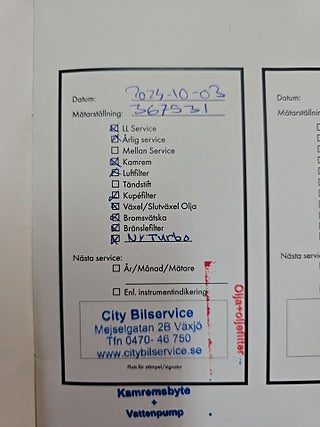 Datum: 2024-10-03
Mätarställning: 367531
LL Service
Årlig service
Mellan Service
Kamrem
Luftfilter
Tändstift
Kupéfilter
Växel/Slutväxel Olja
Bromsvätska
Bränslefilter
Ny Turbo
Nästa service:
År/Månad/Mätare
Enl. instrumentindikering
Olja+oljefilter
City Bilservice
Mejselgatan 2B Växjö
Tfn 0470- 46 750
www.citybilservice.se
Plats för stämpel/signatur
Kamremsbyte
+
Vattenpump
Datum:
Mätarställnin
Nästa servic